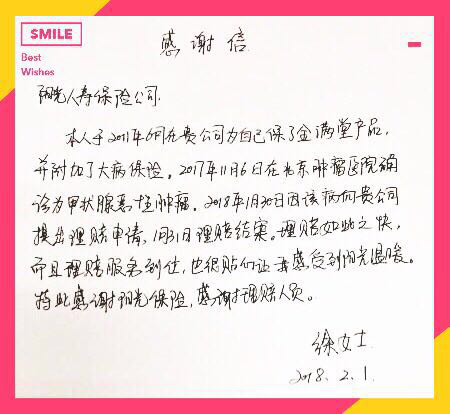 SMILE
Best
Wishes
感谢信
阳光人寿保险公司
本人于2011年6月在贵公司为自己保了金满堂产品,
并附加了大病保险。2017年11月6日在北京肿瘤医院确
诊为甲状腺恶性肿瘤。2018年1月30日因该病向贵公司
提出理赔申请,1月31日理赔结案。理赔如此之快,
而且理赔服务到位,也很贴心让我感受到阳光温暖。
特此感谢阳光保险,感谢理赔人员。
徐女士
2018.2.1